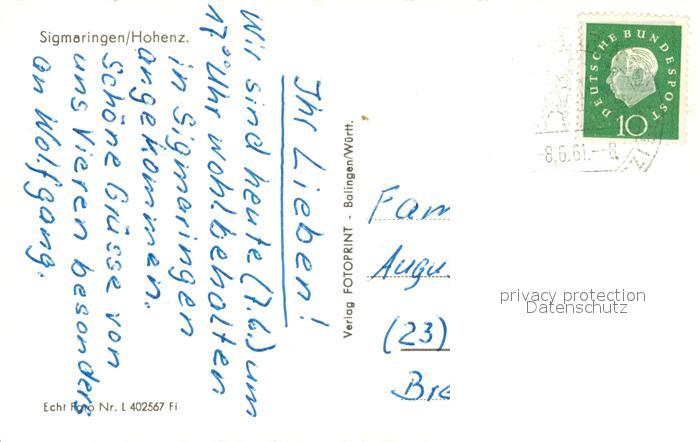 Sigmaringen/Hohenz.
Ihr Lieben!
Wir sind heute (7.6.) um
17⁰⁰ Uhr wohlbehalten
in Sigmaringen
angekommen.
Schöne Grüsse von
uns Vieren besonders
an Wolfgang.
Echt Foto Nr. L 402567 Fi
Verlag FOTOPRINT - Balingen/Württ.
DEUTSCHE BUNDESPOST
10
-8.6.61.--8
Fam
Augu
(23)
Bre
privacy protection
Datenschutz